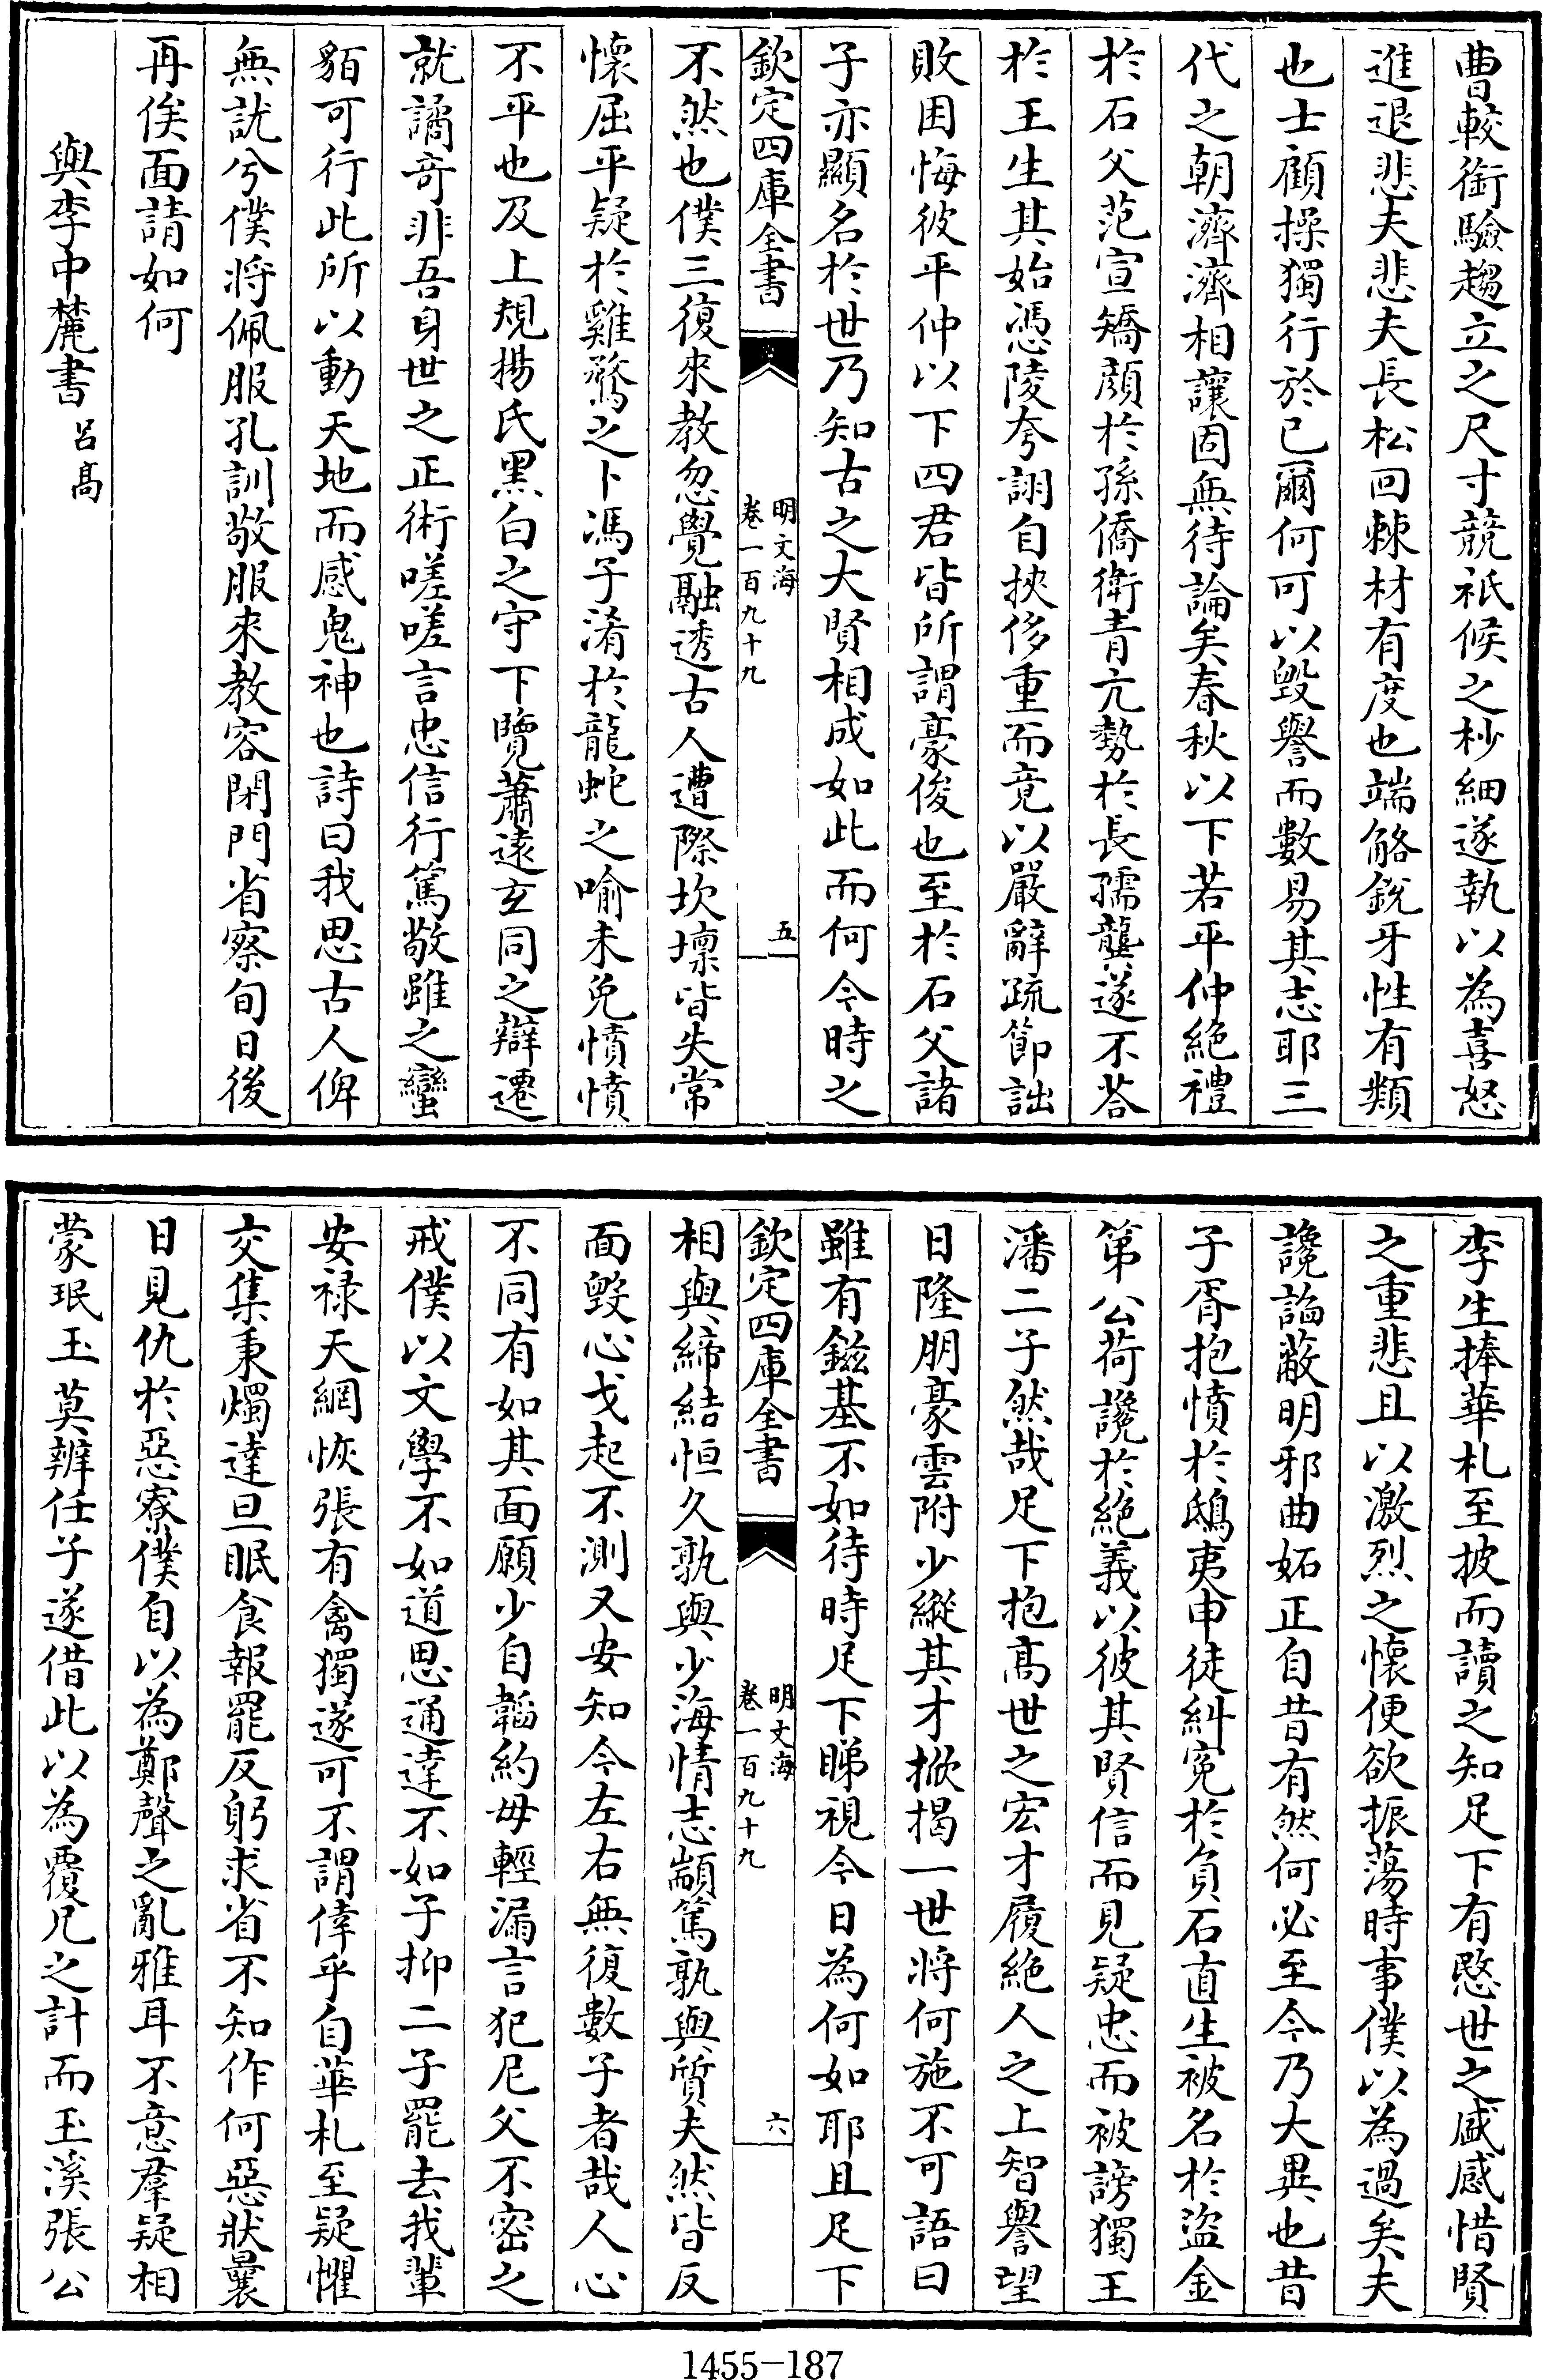 曹較銜驗趨立之尺寸競祇候之杪細遂執以為喜怒
進退悲夫悲夫長松回棘材有度也端觡銳牙性有類
也士顧操獨行於已爾何可以毀譽而數易其志耶三
代之朝濟濟相讓固無待論矣春秋以下若平仲絶禮
於石父范宣矯顔於孫僑衛青亢勢於長孺龔遂不荅
於王生其始憑陵夸詡自挾侈重而竟以嚴辭疏節詘
敗困悔彼平仲以下四君皆所謂豪俊也至於石父諸
子亦顯名於世乃知古之大賢相成如此而何今時之
欽定四庫全書
明文海
卷一百九十九
五
不然也僕三復來教忽覺融透古人遭際坎壈皆失常
懷屈平疑於雞鶩之卜馮子淆於龍蛇之喻未免憤憤
不平也及上規揚氏黑白之守下覽蕭遠玄同之辯遷
就譎奇非吾身世之正術嗟嗟言忠信行篤敬雖之蠻
貊可行此所以動天地而感鬼神也詩曰我思古人俾
無訧兮僕將佩服孔訓敬服來教容閉門省察旬日後
再俟面請如何
與李中麓書 吕髙
李生捧華札至披而讀之知足下有愍世之感感惜賢
之重悲且以激烈之懷便欲振蕩時事僕以為過矣夫
讒謟蔽明邪曲妬正自昔有然何必至今乃大異也昔
子胥抱憤於鴟夷申徒糾寃於負石直生被名於盜金
第公荷讒於絶義以彼其賢信而見疑忠而被謗獨王
潘二子然哉足下抱髙世之宏才履絶人之上智譽望
日隆朋豪雲附少縱其才掀揭一世將何施不可語曰
雖有鎡基不如待時足下睇視今日為何如耶且足下
欽定四庫全書
明文海
卷一百九十九
六
相與締結恒久孰與少海情志顓篤孰與質夫然皆反
面毀心戈起不測又安知今左右無復數子者哉人心
不同有如其面願少自韜約毋輕漏言犯尼父不密之
戒僕以文學不如道思通達不如子抑二子罷去我輩
安禄天網恢張有禽獨遂可不謂倖乎自華札至疑懼
交集秉燭達旦眠食報罷反躬求省不知作何惡狀曩
日見仇於惡寮僕自以為鄭聲之亂雅耳不意羣疑相
蒙珉玉莫辨任子遂借此以為覆凡之計而玉溪張公
1455-187